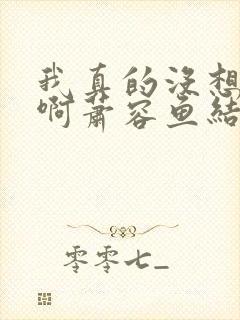 我真的没想
啊萧容鱼结
零零七_